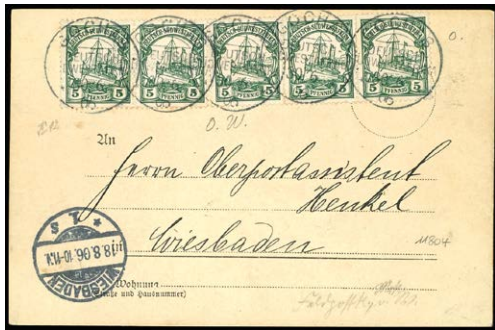 DEUTSCH-SÜDWESTAFRIKA
5 PFENNIG 5
5 PFENNIG 5
5 PFENNIG 5
5 PFENNIG 5
5 PFENNIG 5
D. W.
An
Herrn Oberpostassistent
Henkel
Wiesbaden
11804
WIESBADEN
* 1 s
18.8.06.10-11V.
Wohnung
(Straße und Hausnummer)